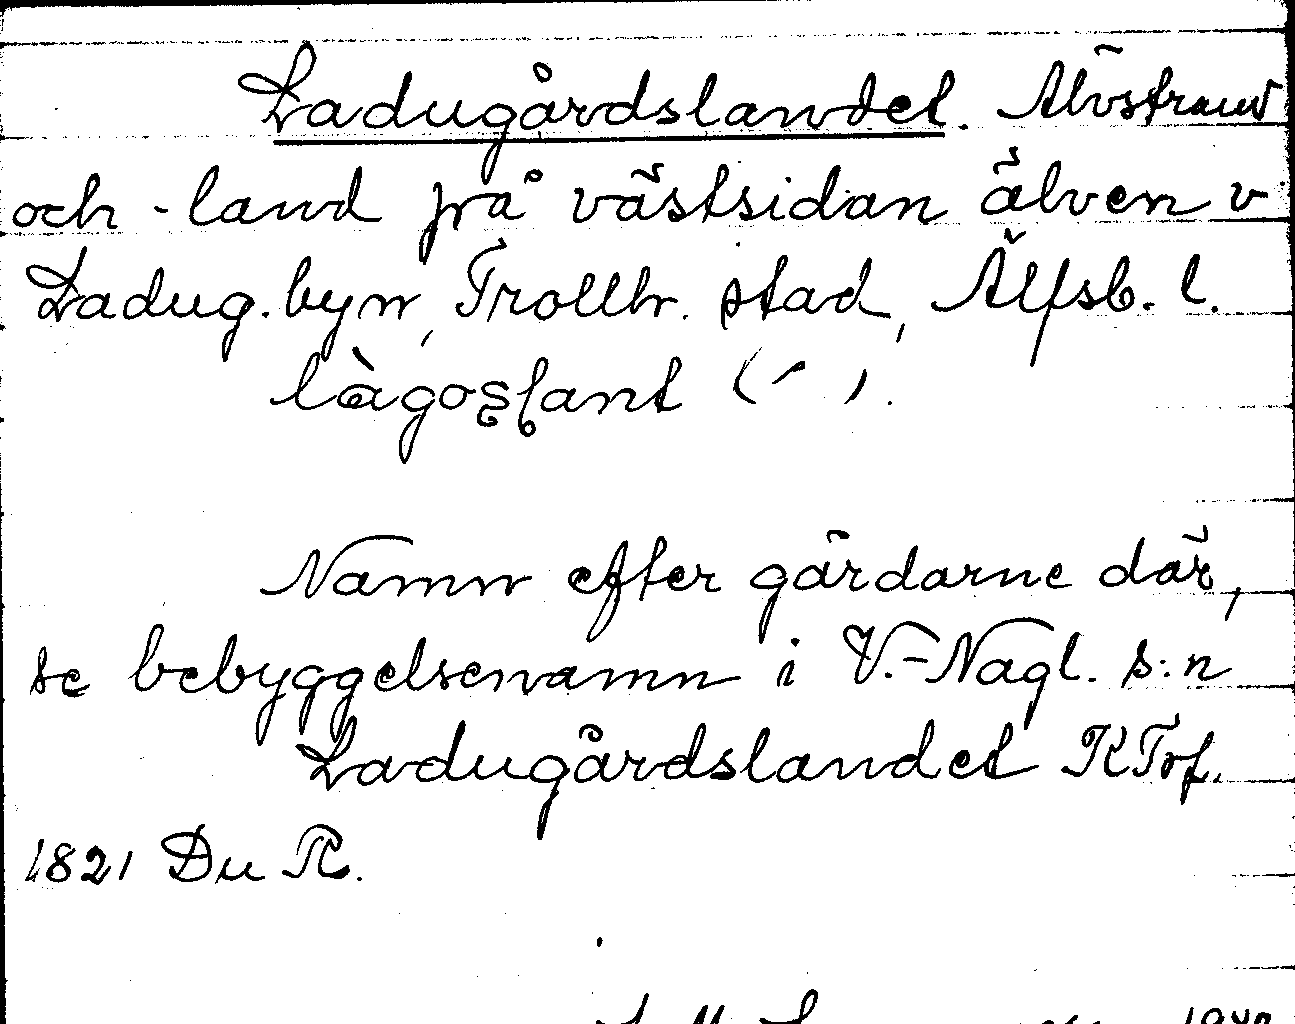 Ladugårdslandet. Älvstrand
och -land på västsidan älven v
Ladug.byn, Trollh. stad, Älfsb. l.
làgoșlant (´).
Namn efter gårdarne där,
se bebyggelsenamn i V.-Nagl. s:n
Ladugårdslandet KTrf.
1821 Du R.